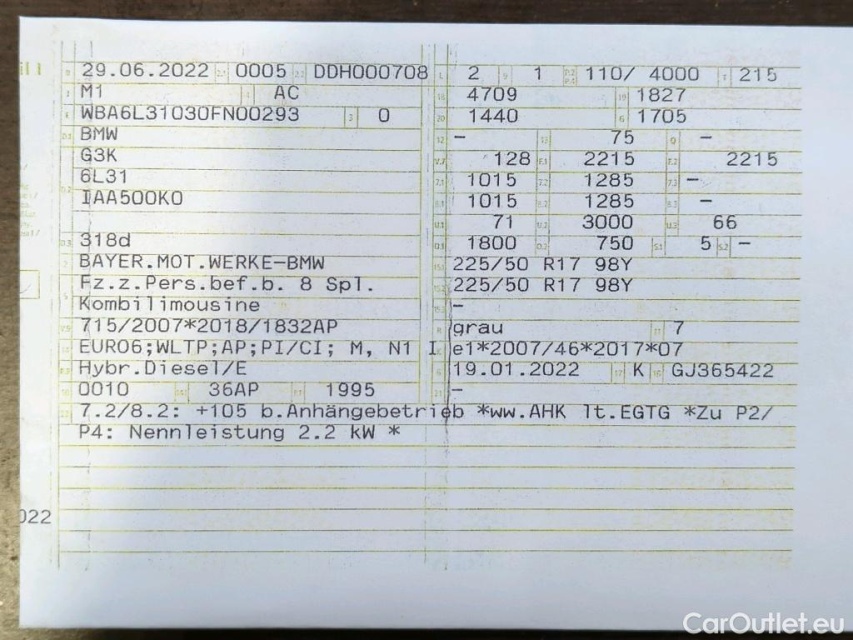 29.06.2022 0005 DDH000708 2 1 110/ 4000 215
M1 AC 4709 1827
WBA6L31030FN00293 0 1440 1705
BMW – 75 –
G3K 128 2215 2215
6L31 1015 1285 –
IAA500K0 1015 1285 –
71 3000 66
318d 1800 750 5 –
BAYER.MOT.WERKE-BMW 225/50 R17 98Y
Fz.z.Pers.bef.b. 8 Spl. 225/50 R17 98Y
Kombilimousine –
715/2007*2018/1832AP grau 7
EURO6;WLTP;AP;PI/CI; M, N1 I e1*2007/46*2017*07
Hybr.Diesel/E 19.01.2022 K GJ365422
0010 36AP 1995 –
7.2/8.2: +105 b.Anhängebetrieb *ww.AHK lt.EGTG *Zu P2/
P4: Nennleistung 2.2 kW *
022
CarOutlet.eu